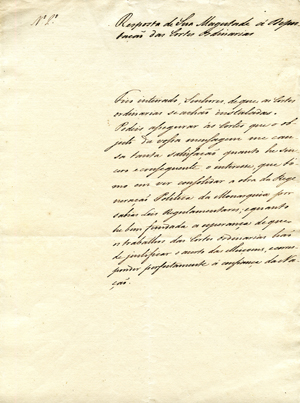 Nº 1.º
Resposta de Sua Magestade á Depu
tação das Cortes Ordinarias
Fico inteirado, Senhores, de que as Cortes
ordinarias se achão installadas.
Podeis assegurar ás Cortes que o ob-
jecto da vossa mensagem me cau
sa tanta satisfação quanto he sin
cero e consequente o interesse, que to
mo em ver consolidar a obra da Rege
neração Politica da Monarquia por
sabias Leis Regulamentares, e quanto
he bem fundada a esperança de que
os trabalhos das Cortes ordinarias hão
de justificar o acerto da Escolha, e corres
ponder perfeitamente á confiança da Na
ção.